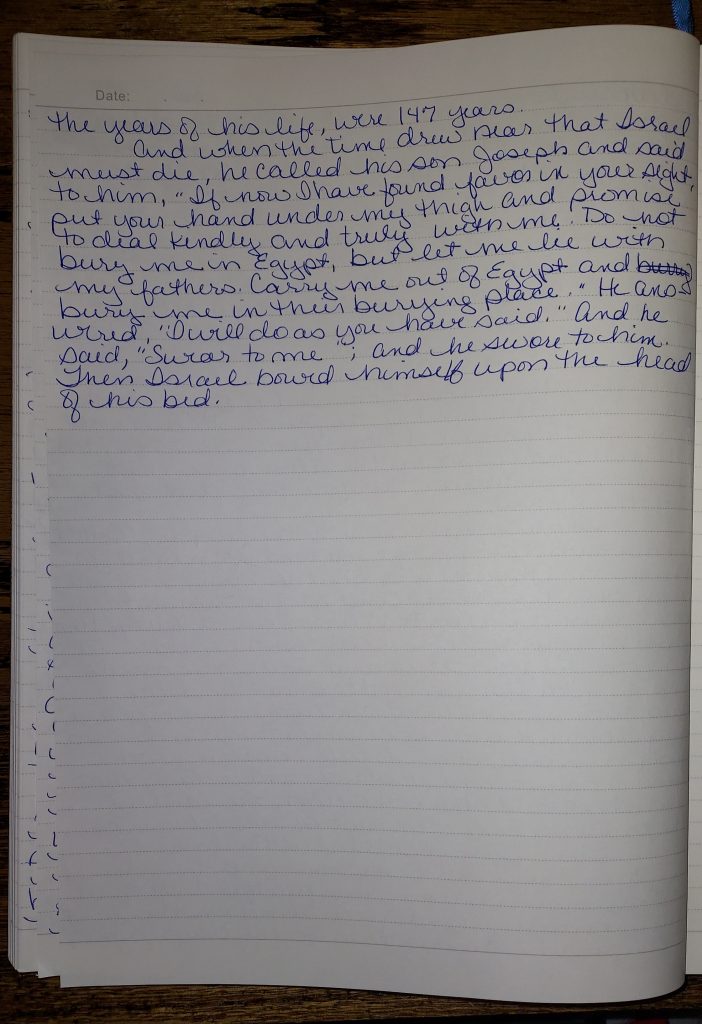 Date:
the years of his life, were 147 years.
And when the time drew near that Israel
must die, he called his son Joseph and said
to him, "If now I have found favor in your sight,
put your hand under my thigh and promise
to deal kindly and truly with me. Do not
bury me in Egypt, but let me lie with
my fathers. Carry me out of Egypt and bury
bury me in their burying place." He ans
wered, "I will do as you have said." And he
said, "Swear to me"; and he swore to him.
Then Israel bowed himself upon the head
of his bed.